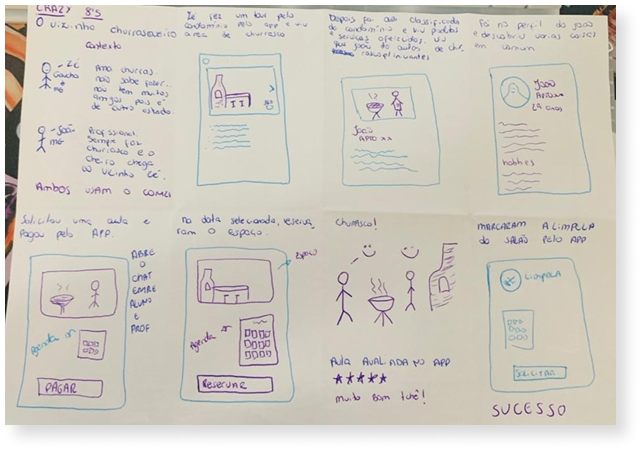 CRAZY 8'S
O vizinho churrasqueiro
contexto
Zé
Gaúcho
Ama churras.
não sabe fazer..
não tem muitos
amigos pois é
de outro estado.
João
Profissional.
Sempre faz
churrasco e o
cheiro chega
ao vizinho Zé.
Ambos usam o
Zé fez um tour pelo
condomínio pelo app e viu
a área de churrasco
Depois foi aos classificados
do condomínio e viu produtos
e serviços oferecidos. Viu
João dá aulas de
João
APTO xx
Foi no perfil do João
e descobriu várias coisas
em comum
João
APTO xx
29 anos
hobbies
Solicitou uma aula e
Pagou pelo APP.
ABRE
O
CHAT
ENTRE
ALUNO
E
PROF
Agendar
PAGAR
na data selecionada, reserva
ram o espaço.
Agendar
Reservar
Churrasco!
Aula AVALIADA NO APP
muito bom tchê!
MARCARAM A LIMPEZA
do salão pelo APP
LIMPEZA
SOLICITAR
SUCESSO